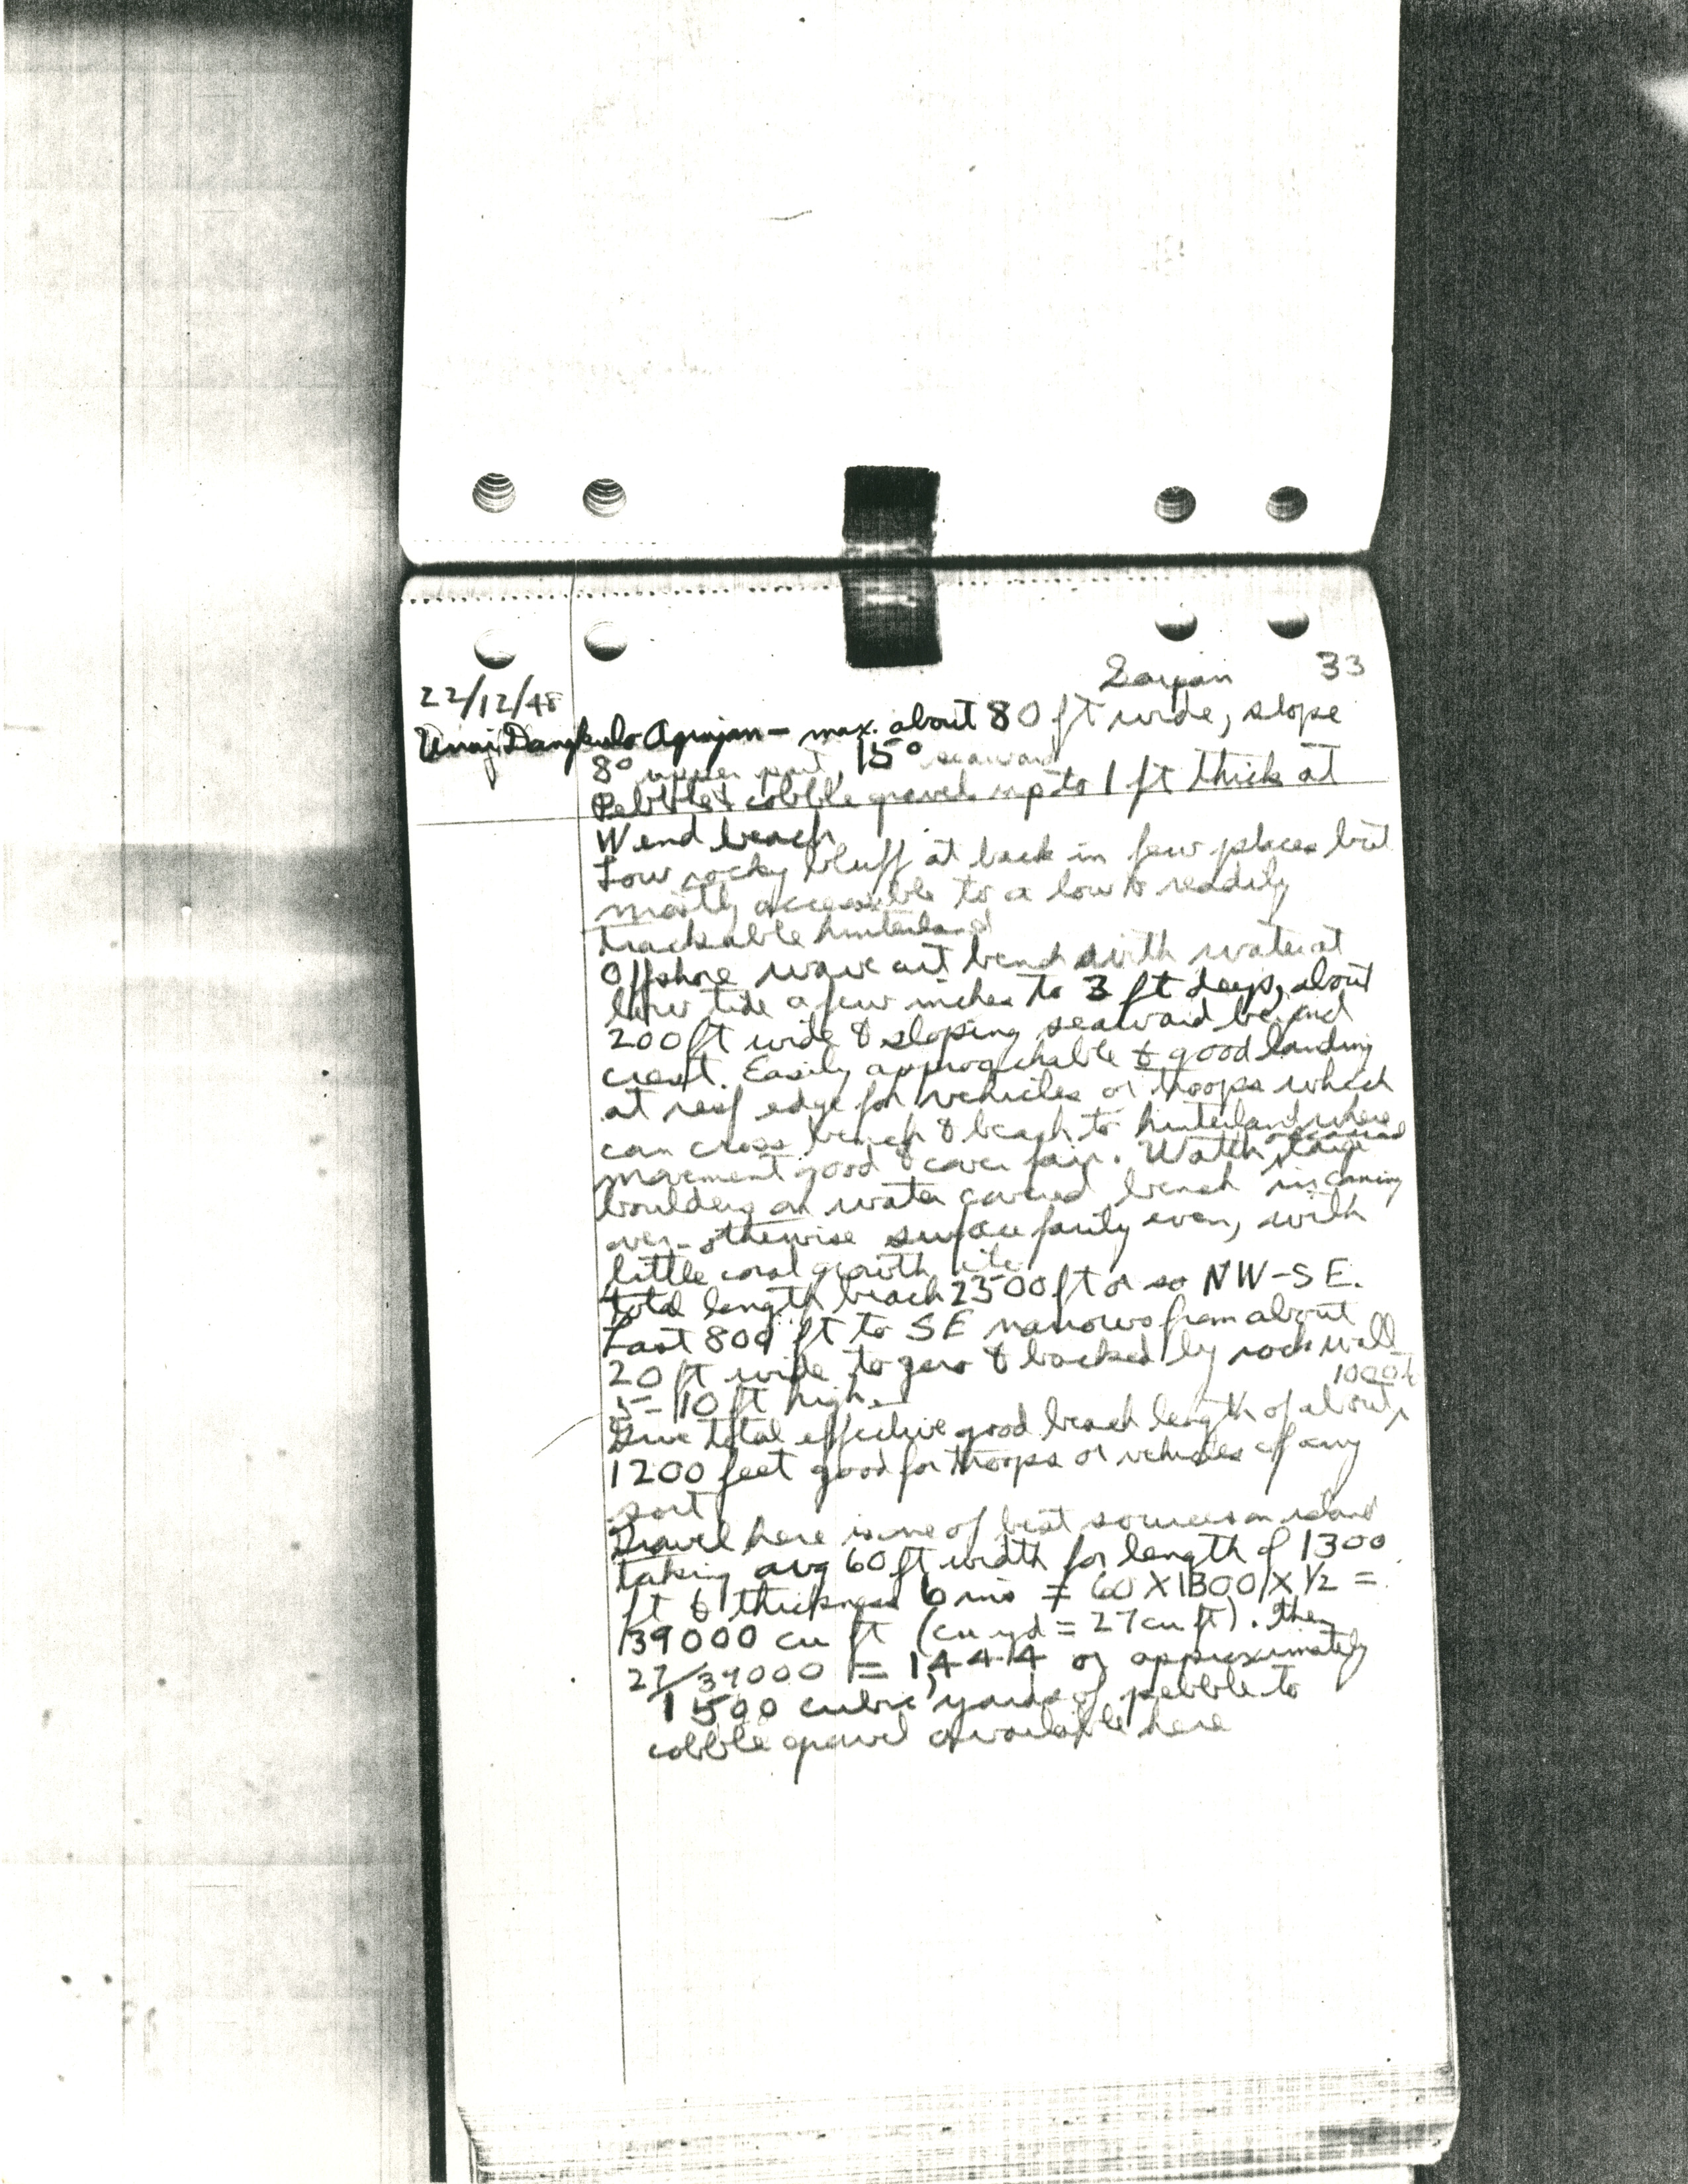 Saipan 33
22/12/48
Unai Dangkulo Agingan — max. about 80 ft wide, slope
8° upper part 15° seaward
Pebble & cobble gravel up to 1 ft thick at
W end beach
Low rocky bluff at back in few places but
mostly accessible to a low & readily
trackable hinterland
Offshore wave cut bench with water at
low tide a few inches to 3 ft deep, about
200 ft wide & sloping seaward beyond
crest. Easily approachable & good landing
at reef edge for vehicles or troops which
can cross bench & beach to hinterland where
movement good & cover fair. Watch occasional large
boulders on water covered bench in coming
over - otherwise surface fairly even, with
little coral growth etc
Total length beach 2500 ft or so NW-SE.
Last 800 ft to SE narrows from about
20 ft wide to zero & backed by rock wall
5-10 ft high.
Give total effective good beach length of about 1000 to
1200 feet good for troops or vehicles of any
sort
Gravel here is one of best sources on island
taking avg 60 ft width for length of 1300
ft & thickness 6 ins = 60 X 1300 X 1/2 =
39000 cu ft (cu yd = 27 cu ft). then
27/39000 = 1,444 or approximately
1500 cubic yards of pebble to
cobble gravel available here